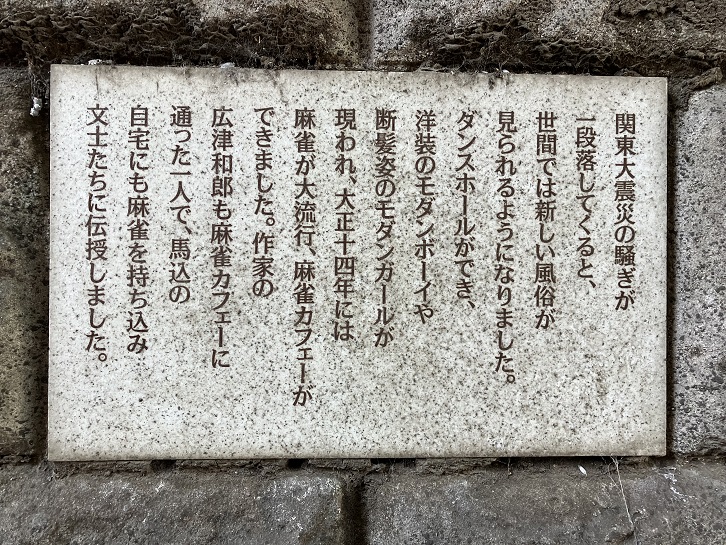 関東大震災の騒ぎが
一段落してくると、
世間では新しい風俗が
見られるようになりました。
ダンスホールができ、
洋装のモダンボーイや
断髪姿のモダンガールが
現われ、大正十四年には
麻雀が大流行、麻雀カフェーが
できました。作家の
広津和郎も麻雀カフェーに
通った一人で、馬込の
自宅にも麻雀を持ち込み
文士たちに伝授しました。